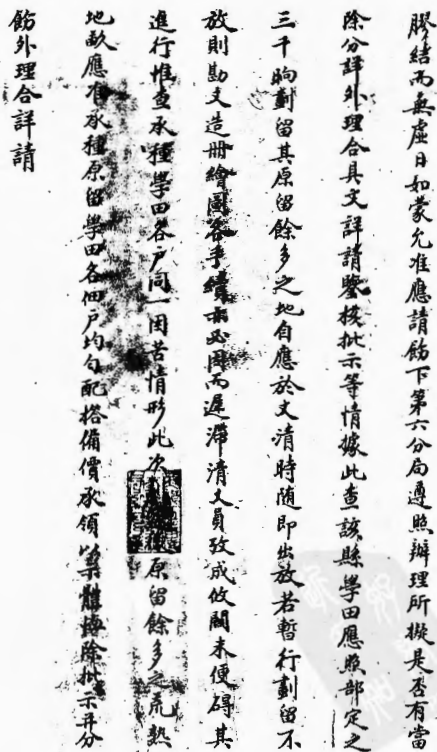 膠結而無虛日如蒙允准應請飭下第六分局遵照辦理所擬是否有當
除分詳外理合具文詳請鑒核批示等情據此查該縣學田應照部定之
三千晌劃留其原留餘多之地自應於丈清時隨即出放若暫行劃留不
放則勘丈造冊繪圖各手續亦必因而遲滯清丈員攷成攸關未便礙其
進行惟查承種學田各戶同一困苦情形此次原留餘多之荒熟
地畝應准承種原留學田各佃戶均勻配搭備價承領以體除批示并分
飭外理合詳請